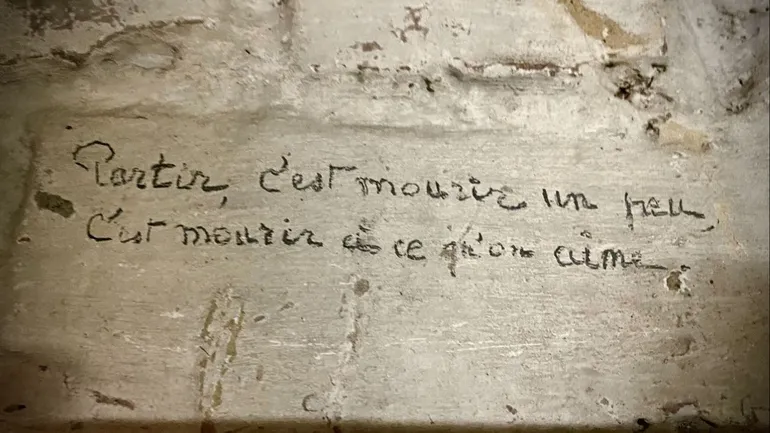 Partir, c'est mourir un peu,
C'est mourir à ce qu'on aime.